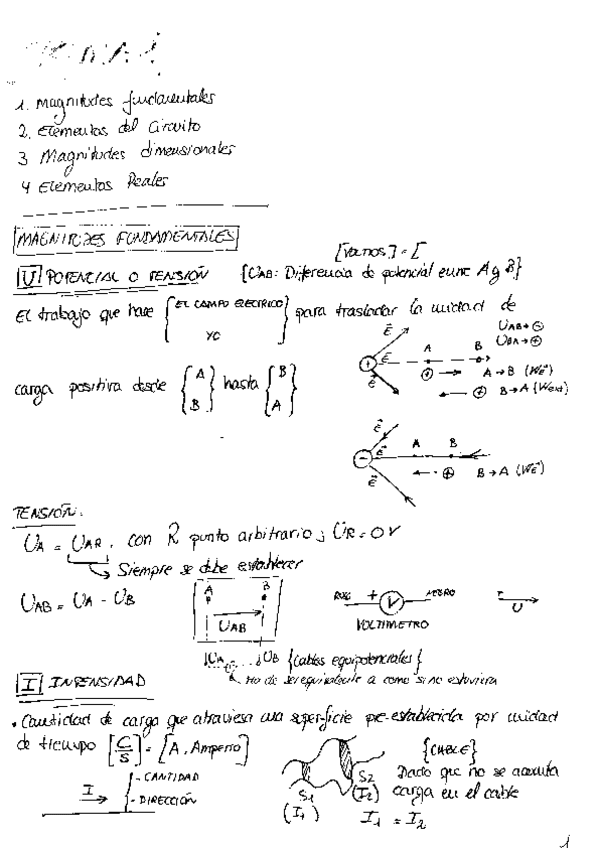 1. Magnitudes fundamentales
2. Elementos del Circuito
3 Magnitudes dimensionales
4 Elementos Reales
MAGNITUDES FUNDAMENTALES
[Voltios] = [
U POTENCIAL O TENSIÓN {UAB: Diferencia de potencial entre A y B}
El trabajo que hace { EL CAMPO ELECTRICO / YO } para trasladar la unidad de
carga positiva desde { A / B } hasta { B / A }
UAB → ⊖
UBA → ⊕
E A B
E
E ⊕ → A → B (WE)
← ⊕ B → A (Wext)
E
E A B
E ← ⊕ B → A (WE)
TENSIÓN.
UA = UAR, con R punto arbitrario; UR = 0 V
Siempre se debe establecer
UAB = UA - UB
A B
UAB
ROJO + V NEGRO
VOLTIMETRO
U
UA ... UB {Cables equipotenciales}
Ha de ser equivalente a como si no estuviera
I INTENSIDAD
• Cantidad de carga que atraviesa una superficie pre-establecida por unidad
de tiempo [C/S] = [A, Amperio]
I
- CANTIDAD
- DIRECCIÓN
S1 S2
(I1) (I2)
{CABLE}
Dado que no se acumula
carga en el cable
I1 = I2
1